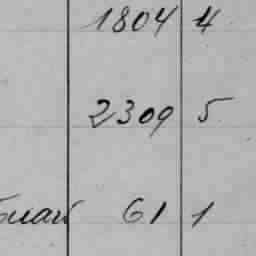 1804 4
2309 5
61 1